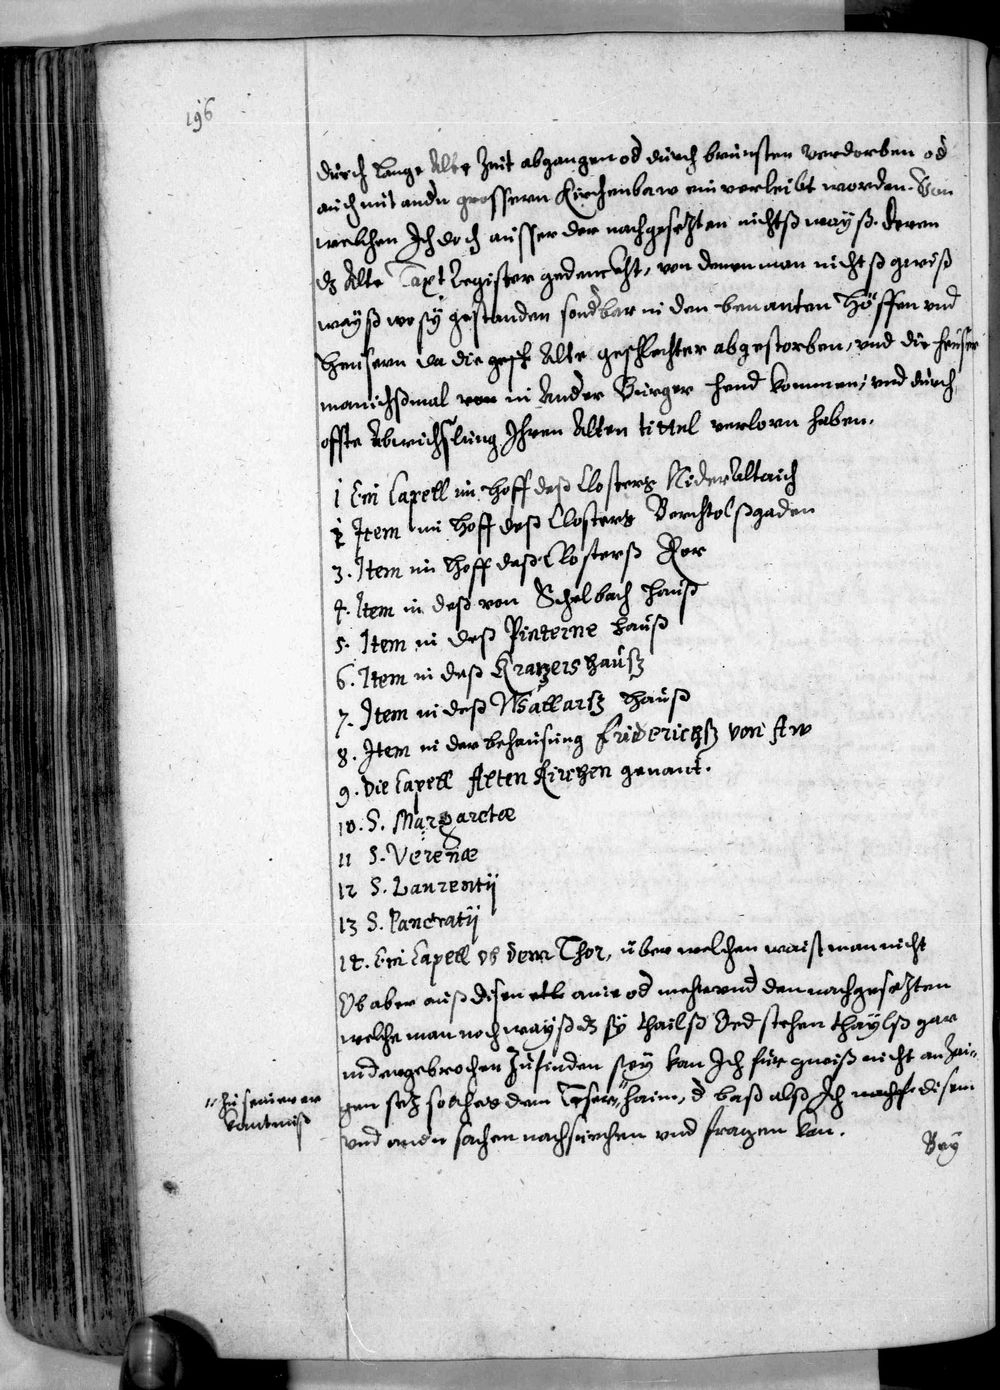 196
durch lange Alte Zeit abgangen od durch brunsten verdorben od
auch mit andn grossern Kirchenbaw einverleibt worden. Von
welchen Ich doch ausser der nachgesetzten nichtß wayß. deren
dz Alte Taxt Register gedenckht, von denen man nicht ß gwiß
wayß wo sÿ gestanden sondbar in den benanten Höffen und
Heusern da die gesch Alte geschlechter abgestorben, und die heuser
manichßmal von in Ander Burger hend kommen, und durch
offte Abwichßlung Ihren Alten tittel verlorn haben.
1 Ein Capell im Hoff deß Closters Nider Altaich
2 Item im Hoff deß Closters Berchtolßgaden
3. Item im Hoff deß Closterß Ror
4. Item in deß von Schelbach hauß
5. Item in deß Pinterne hauß
6. Item in deß Kratzers hauß
7. Item in deß Wallarß hauß
8. Item in der behausung Friderichß von Aw
9. Die Capell Alten Kirchen genant.
10. S. Margaretæ
11 S. Verenæ
12 S. Laurentij
13 S. Pancratij
14. Ein Capell ob dem Thor, über welchen waist man nicht
Ob aber auß disen alle ainr od mehr und den nachgesetzten
welche man noch wayß dz sÿ thailß Oed stehen thaylß gar
nidergebrochen Zufinden seÿ kan Ich für gwiß nicht an Zai-
gen setz solches dem Leser haim, d baß alß Ich disem
"zu seiner er
kantnuß
und andn sachen nachsuechen und fragen kan.
Beÿ